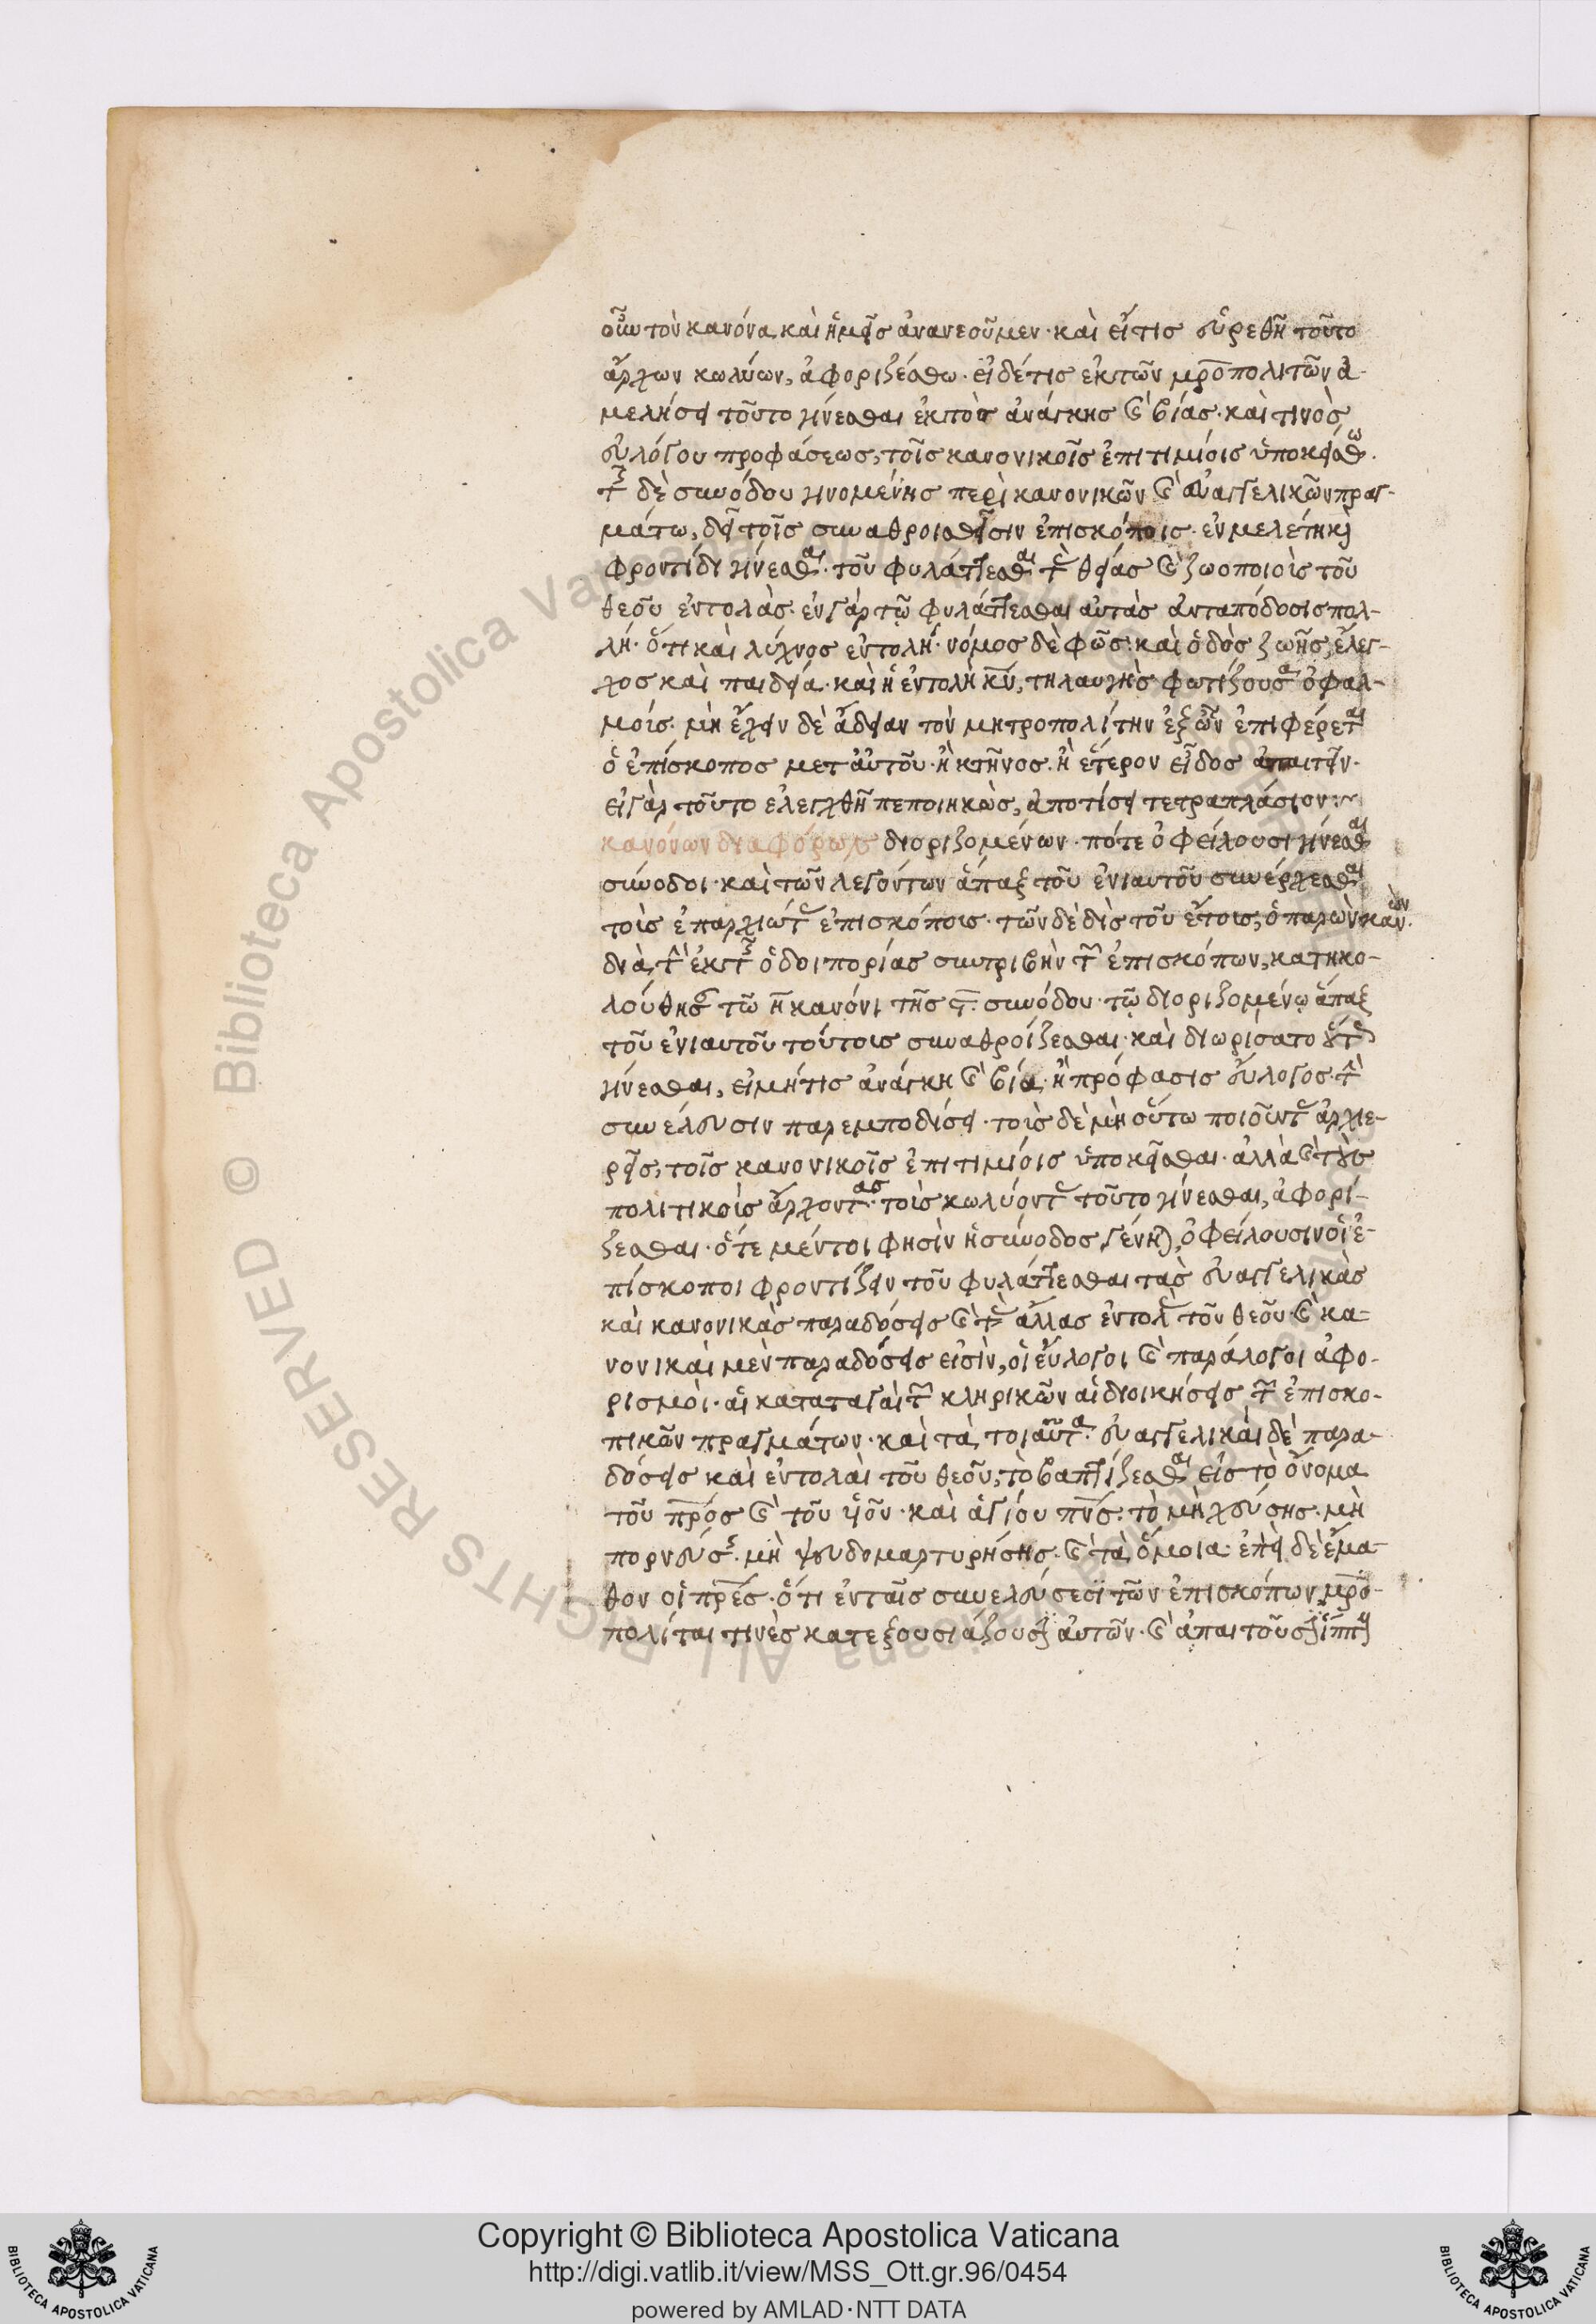 οὖν τὸν κανόνα, καὶ ἡμεῖς ἀνανεοῦμεν· καὶ εἴ τις εὑρεθῆ τοῦτο
ἄρχων κωλύων, ἀφοριζέσθω· εἰ δέ τις ἐκ τῶν μροπολιτῶν ἀ-
μελήσει τοῦτο γίνεσθαι ἐκτὸς ἀνάγκης καὶ βίας· καί τινος
εὐλόγου προφάσεως, τοῖς κανονικοῖς ἐπιτιμίοις ὑποκείσθω.
τῆς δὲ συνόδου γινομένης περὶ κανονικῶν καὶ εὐαγγελικῶν πραγ-
μάτω, δεῖ τοῖς συναθροισθεῖσιν ἐπισκόποις· ἐν μελέτη κ
φροντίδι γίνεσθαι· τοῦ φυλάττεσθαι τὰς θείας καὶ ζωοποιοὶς τοῦ
θεοῦ ἐντολάς· ἐν γὰρ τῷ φυλάττεσθαι αὐτὰς ἀνταπόδοσις πολ-
λή· ὅτι καὶ λύχνος ἐντολή· νόμος δὲ φῶς· καὶ ὁδὸς ζωῆς, ἔλεγ-
χος καὶ παιδεία· καὶ ἡ ἐντολὴ κυ, τηλαυγὴς φωτίζουσα ὀφαλ-
μοίς· μὴ ἔχειν δὲ ἄδειαν τὸν μητροπολίτην ἐξ ὧν ἐπιφέρεται
ὁ ἐπίσκοπος μετ αὐτοῦ· ἢ κτῆνος· ἢ ἕτερον εἶδος ἀπαιτεῖν·
εἰ γὰρ τοῦτο ἐλεγχθῆ πεποιηκὼς, ἀποτίσει τετραπλάσιον:
κανόνων διαφόρως διοριζομένων· πότε ὀφείλουσι γίνεσθαι
σύνοδοι· καὶ τῶν λεγόντων ἅπαξ τοῦ ἐνιαυτοῦ συνέρχεσθαι
τοὶς ἐπαρχιώτας ἐπισκόποις· τῶν δὲ δὶς τοῦ ἔτοις, ὁ παρὼν κανὼν.
διὰ, τὴν ἐκ τῆς ὁδοιπορίας συντριβὴν τῶν ἐπισκόπων, κατηκο-
λούθησε τῶ η κανόνι τῆς ς συνόδου· τῷ διοριζομένῳ ἅπαξ
τοῦ ἐνιαυτοῦ τούτοις συναθροίζεσθαι· καὶ διωρίσατο οὕτως
γίνεσθαι, εἰ μή τις ἀνάγκη καὶ βία· ἢ πρόφασις εὔλογος· τὴν
συνέλευσιν παρεμποδίσει· τοὶς δὲ μὴ οὕτω ποιοῦντας ἀρχιε-
ρεῖς, τοῖς κανονικοῖς ἐπιτιμίοις ὑποκεῖσθαι· ἀλλὰ καὶ τοὺς
πολιτικοὶς ἄρχοντας· τοὶς κωλύοντας τοῦτο γίνεσθαι, ἀφορί-
ζεσθαι· ὅτε μέντοι φησὶν ἡ σύνοδος γένηται, ὀφείλουσιν οἱ ἐ-
πίσκοποι φροντίζειν τοῦ φυλάττεσθαι τὰς εὐαγγελικὰς
καὶ κανονικὰς παραδόσεις καὶ τὰς ἄλλας ἐντολὰς τοῦ θεοῦ· καὶ κα-
νονικαὶ μὲν παραδόσεις εἰσὶν, οἱ εὔλογοι καὶ παράλογοι ἀφο-
ρισμοὶ· αἱ καταταγαὶ τῶν κληρικῶν αἱ διοικήσεις τῶν ἐπισκο-
πικῶν πραγμάτων· καὶ τὰ, τοιαῦτα· εὐαγγελικαὶ δὲ παρα-
δόσεις καὶ ἐντολαὶ τοῦ θεοῦ, τὸ βαπτίζεσθαι εἰς τὸ ὄνομα
τοῦ προς καὶ τοῦ υἱοῦ· καὶ ἁγίου πνς· τὸ μὴ χεύσης· μὴ
πορνεύσης· μὴ ψευδομαρτυρήσης· καὶ τὰ, ὅμοια· ἐπεὶ δὲ ἔμα-
θον οἱ πρες· ὅτι ἐν ταῖς συνελεύσεσι τῶν ἐπισκόπων, μρο-
πολίται τινὲς κατεξουσιάζουσιν αὐτῶν· καὶ ἀπαιτοῦσιν